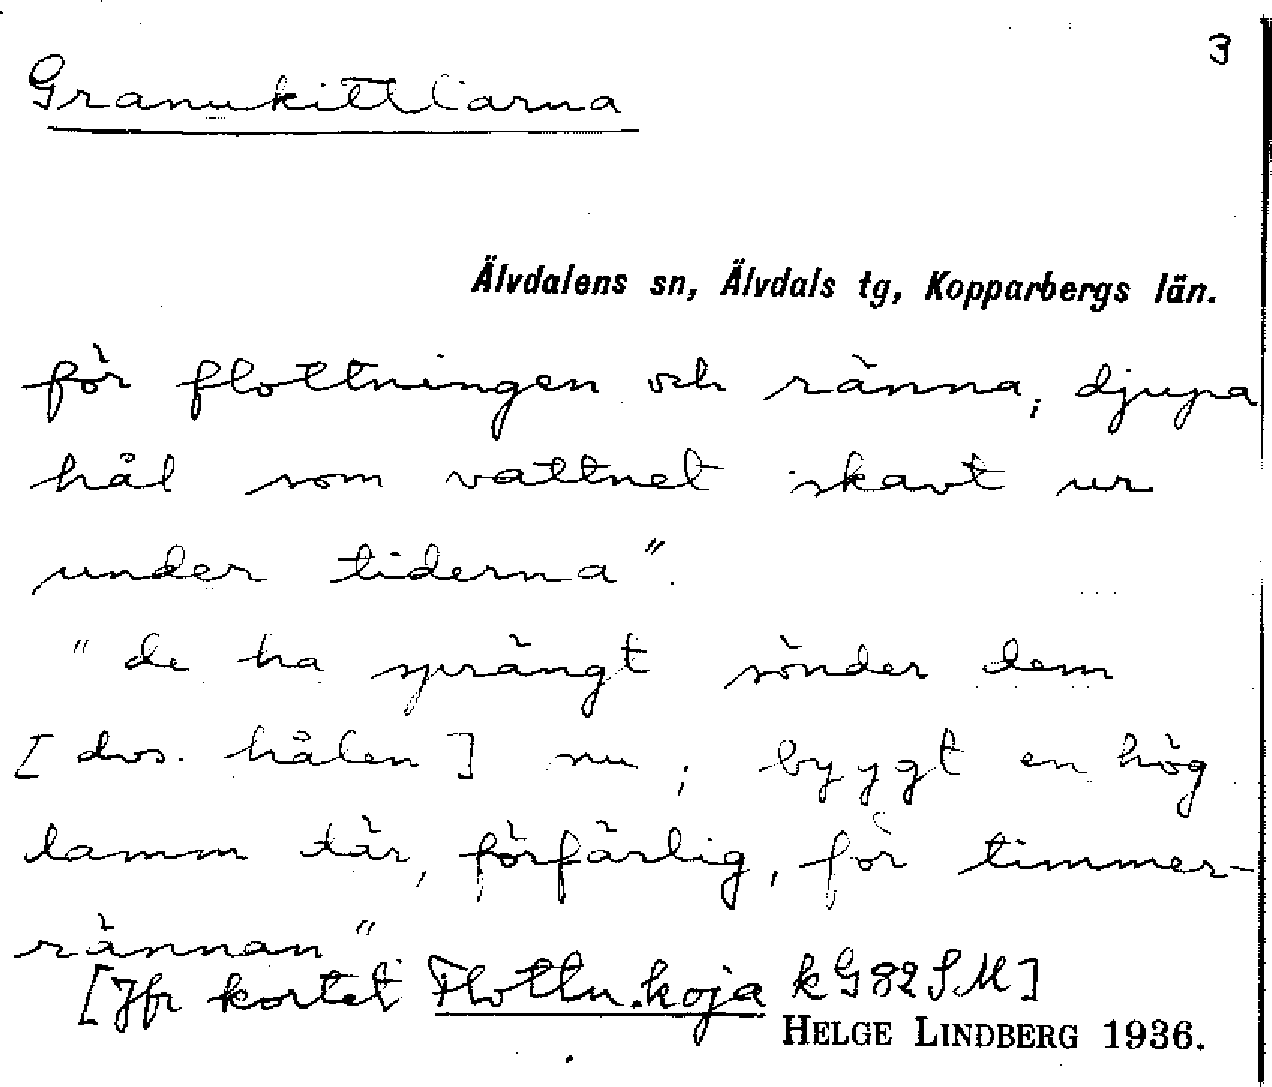 3
Granukittlarna
Älvdalens sn, Älvdals tg, Kopparbergs län.
för flottningen och ränna; djupa
hål som vattnet skavt ur
under tiderna".
"de ha sprängt sönder dem
[dvs. hålen] nu; byggt en hög
damm där, förfärlig, för timmer-
rännan"
[Jfr kortet Flottn.koja kG82SM]
HELGE LINDBERG 1936.